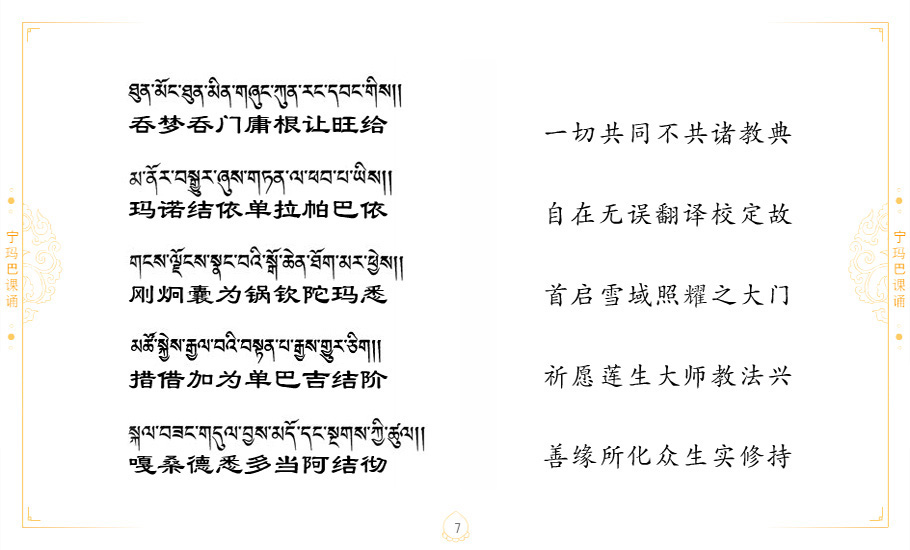 ཐུན་མོང་ཐུན་མིན་གཞུང་ཀུན་རང་དབང་གིས།།
吞梦吞门庸根让旺给
མ་ནོར་བསྒྱུར་ཞུས་གཏན་ལ་ཕབ་པ་ཡིས།།
玛诺结依单拉帕巴依
གངས་ལྗོངས་སྣང་བའི་སྒོ་ཆེན་ཐོག་མར་ཕྱེས།།
刚炯囊为锅钦陀玛悉
མཚོ་སྐྱེས་རྒྱལ་བའི་བསྟན་པ་རྒྱས་གྱུར་ཅིག།
措借加为单巴吉结阶
སྐལ་བཟང་གདུལ་བྱས་མདོ་དང་སྔགས་ཀྱི་ཚུལ།།
嘎桑德悉多当阿结彻
一切共同不共诸教典
自在无误翻译校定故
首启雪域照耀之大门
祈愿莲生大师教法兴
善缘所化众生实修持
宁玛巴课诵
宁玛巴课诵
7